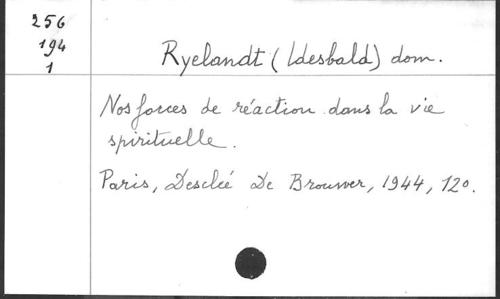 256
194
1
Ryelandt (Idesbald) dom.
Nos forces de réaction dans la vie
spirituelle.
Paris, Desclée De Brouwer, 1944, 12o.